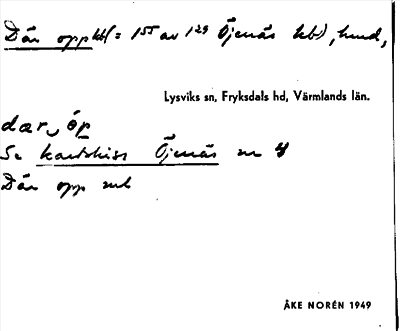 Där oppkb(= 155 av 129 Öjenäs kb), hmd,
Lysviks sn, Fryksdals hd, Värmlands län.
dar, öp
Se kartskiss Öjenäs nr 4
Där opp
ÅKE NORÉN 1949